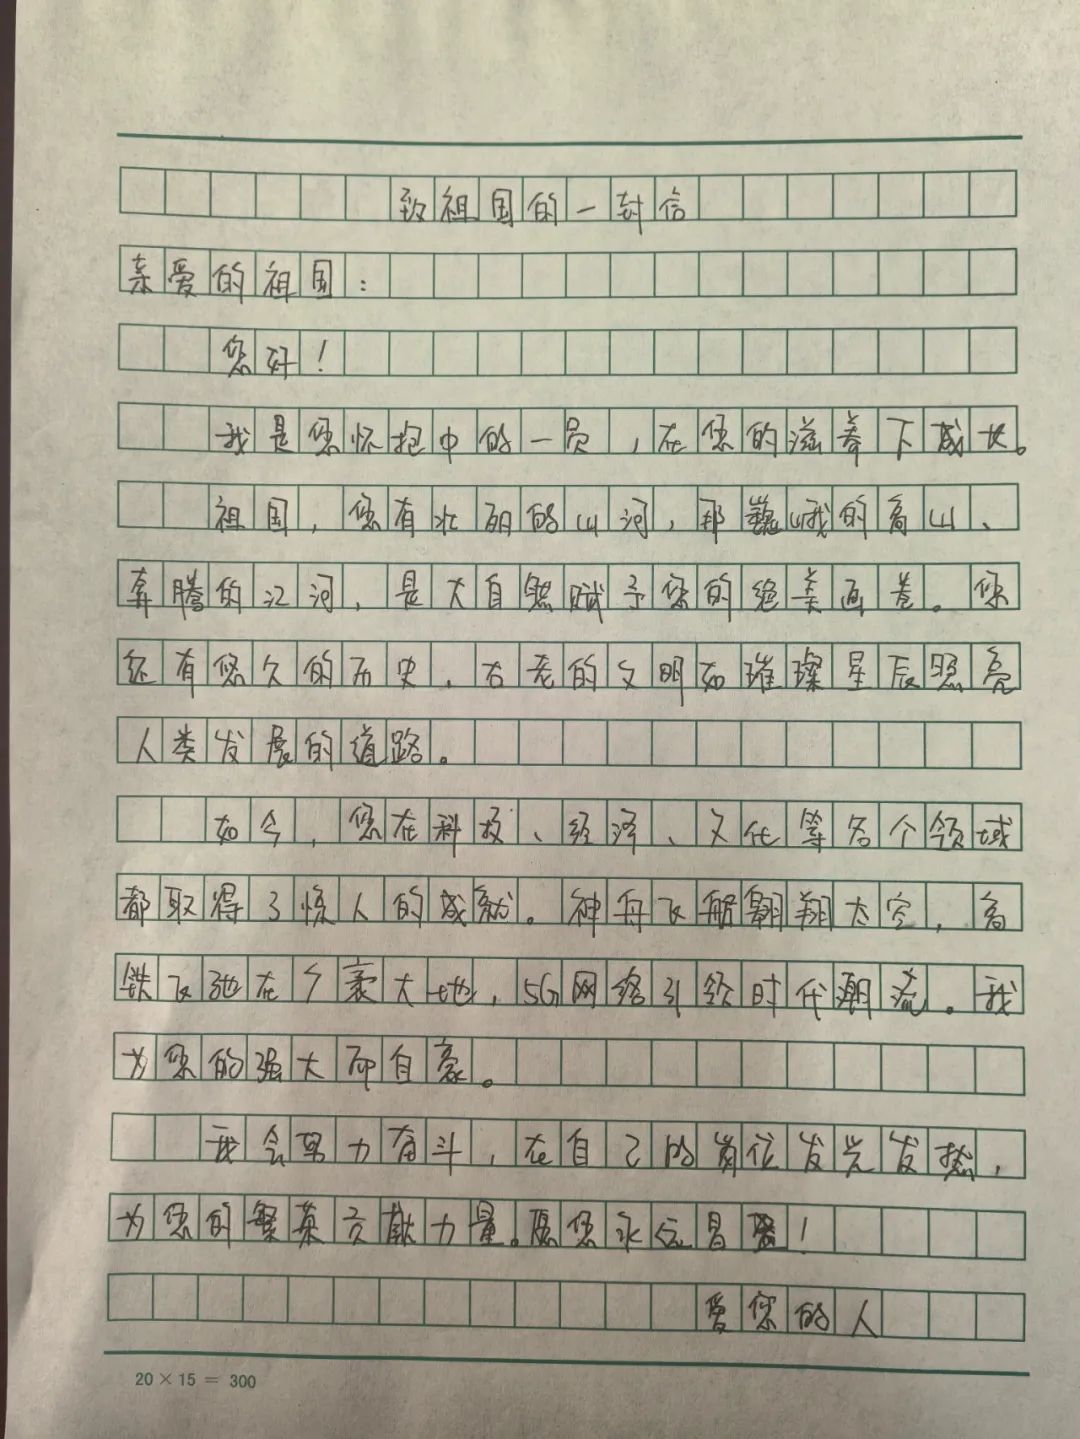 致祖国的一封信
亲爱的祖国：
您好！
我是您怀抱中的一员，在您的滋养下成长。
祖国，您有壮丽的山河，那巍峨的高山、
奔腾的江河，是大自然赋予您的绝美画卷。您
还有悠久的历史，古老的文明如璀璨星辰照亮
人类发展的道路。
如今，您在科技、经济、文化等各个领域
都取得了惊人的成就。神舟飞船翱翔太空，高
铁飞驰在广袤大地，5G网络引领时代潮流。我
为您的强大而自豪。
我会努力奋斗，在自己的岗位发光发热，
为您的繁荣贡献力量。愿您永远昌盛！
爱您的人
20×15＝300